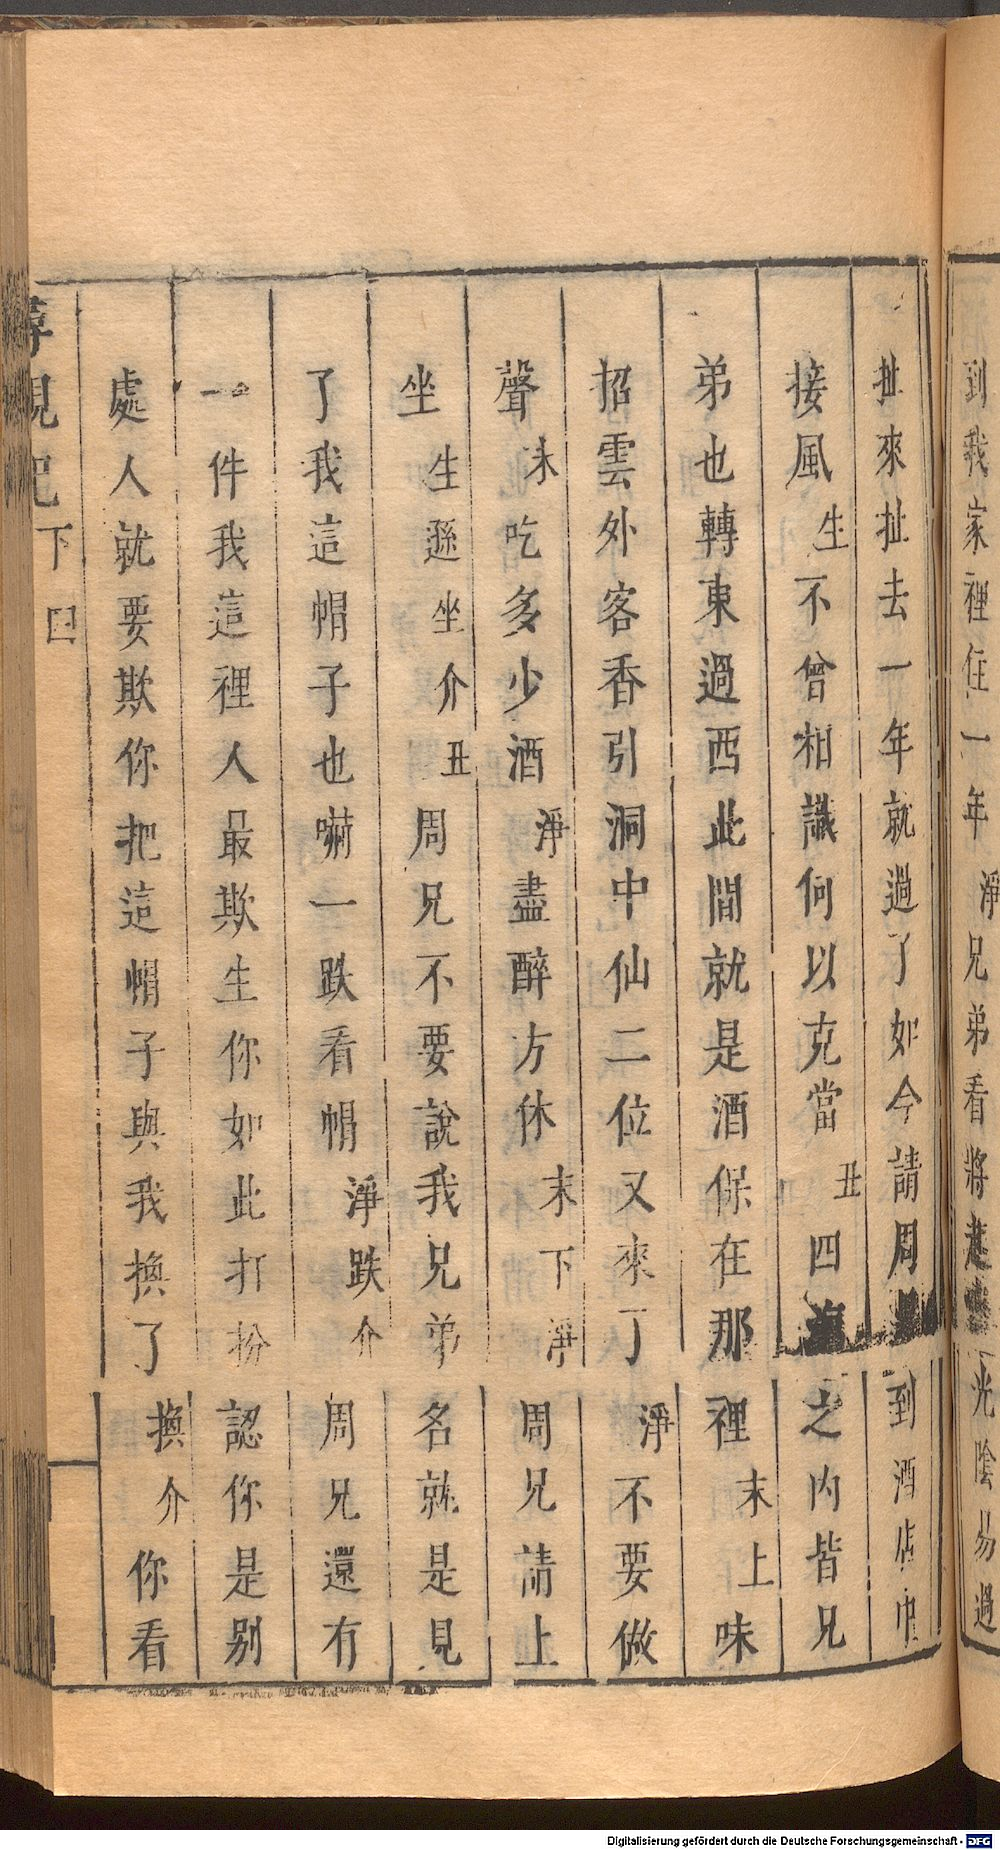 到我家裡住一年淨兄弟看將起光陰易過
扯來扯去一年就過了如今請周到酒店中
接風生不曾相識何以克當丑四海之内皆兄
弟也轉東過西此間就是酒保在那裡末上味
招雲外客香引洞中仙二位又來了淨不要做
聲末吃多少酒淨盡醉方休末下淨周兄請上
坐生遜坐介丑周兄不要說我兄弟名就是見
了我這帽子也嚇一跌看帽淨跌介周兄還有
一件我這裡人最欺生你如此打扮認你是别
處人就要欺你把這帽子與我換了換介你看
尋親記 下 四
Digitalisierung gefördert durch die Deutsche Forschungsgemeinschaft - DFG